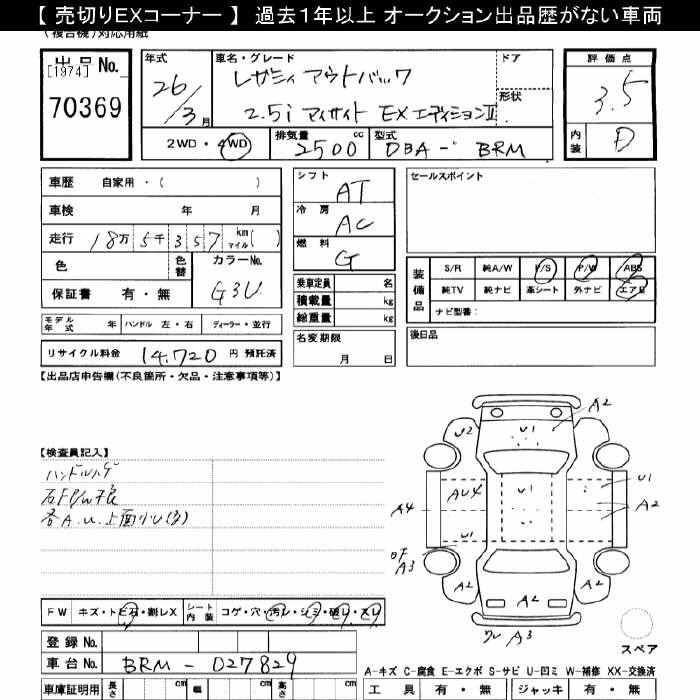 【 売切りEXコーナー 】 過去1年以上 オークション出品歴がない車両
(複合機)対応用紙
出品 No.
[1974]
70369
年式
26/3月
車名・グレード
レガシィ アウトバック
2.5i アイサイト EXエディションII
ドア
形状
評価点
3.5
内装 D
2WD・4WD
排気量 cc
2500
型式
DBA - BRM
車歴 自家用・( )
車検 年 月
走行 18万5千357 km マイル( )
色
色替
カラーNo.
G3U
保証書 有・無
モデル年式 年 ハンドル 左・右 ディーラー・並行
リサイクル料金 14,720 円 預託済
シフト
AT
冷房
AC
燃料
G
乗車定員 名
積載量 kg
総重量 kg
名変期限
月 日
セールスポイント
装備品
S/R 純A/W P/S P/W ABS
純TV 純ナビ 革シート 外ナビ エアB
ナビ型番:
後日品
【出品店申告欄(不良箇所・欠品・注意事項等)】
【検査員記入】
ハンドルハゲ
右FP/W不良
各A.U.上面小U(多)
A2
U2
U1
U1
AU4
U1
A4
A2
U1
DF
A3
A2
A2
A2
クレ A3
スペア
FW キズ・トビ石・割レX
シート内装 コゲ・穴・汚レ・シミ・破レ・スレ
登録 No.
車台 No. BRM - D27829
車庫証明用 長さ cm 幅 cm 高さ cm
A-キズ C-腐食 E-エクボ S-サビ U-凹ミ W-補修 XX-交換済
工具 有・無 ジャッキ 有・無